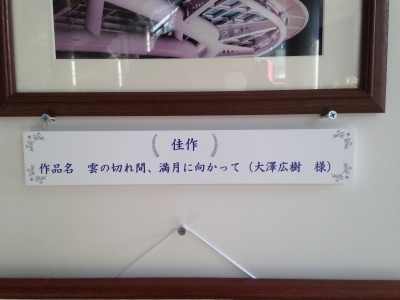 佳作
作品名　雲の切れ間、満月に向かって（大澤広樹　様）